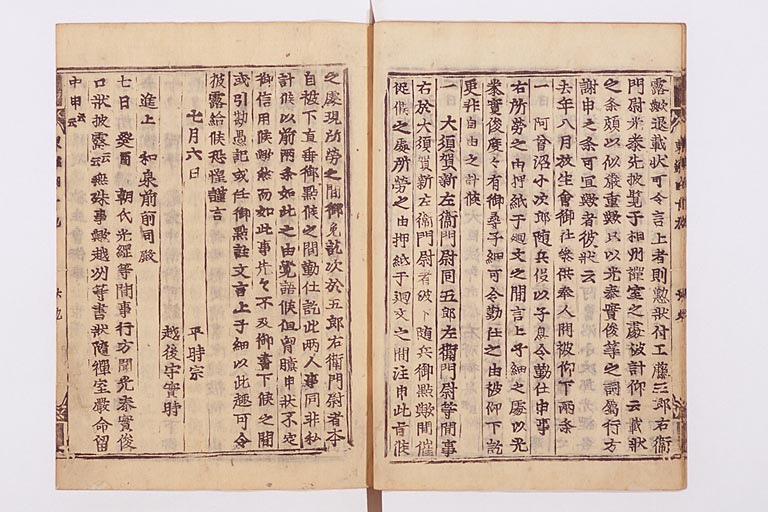 露歟退載状可令言上者則懃状付工藤三郎右衛
門尉光泰先披覧于相州禅室之處被計仰云載状
之条頗以似嚴重歟只以光泰實俊等之詞属行方
謝申之条可宜歟者彼状云
去年八月放生會御社参供奉人間被仰下両条
一 阿曽沼小次郎随兵役以子息令勤仕由事
右所労之由押紙于廻文之間言上子細之處以光
泰實俊度々有御尋子細可令勤仕之由被仰下訖
更非自由之計候
一 大須賀新左衛門尉同五郎左衛門尉等間事
右於大須賀新左衛門尉者被下随兵御點歟間催
促候之處所労之由押紙于廻文之間注申此旨候
之處現所労之間御免訖次於五郎右衛門尉者本
自被下直垂御點候之間勤仕訖此両人事同非私
計候以前両条如此之由覚語候但胃臆申状不定
御信用候歟然而如此事片々不及御書下候之間
或引勘愚記或任御點註文言上子細以此趣可令
披露給候恐惶謹言
七月六日 平時宗
越後守實時
進上 和泉前前司殿
七日 癸酉 朝氏光經等間事行方閇光泰實俊
口状披露云云無殊事歟越州等書状随禅室嚴命留
中申云云